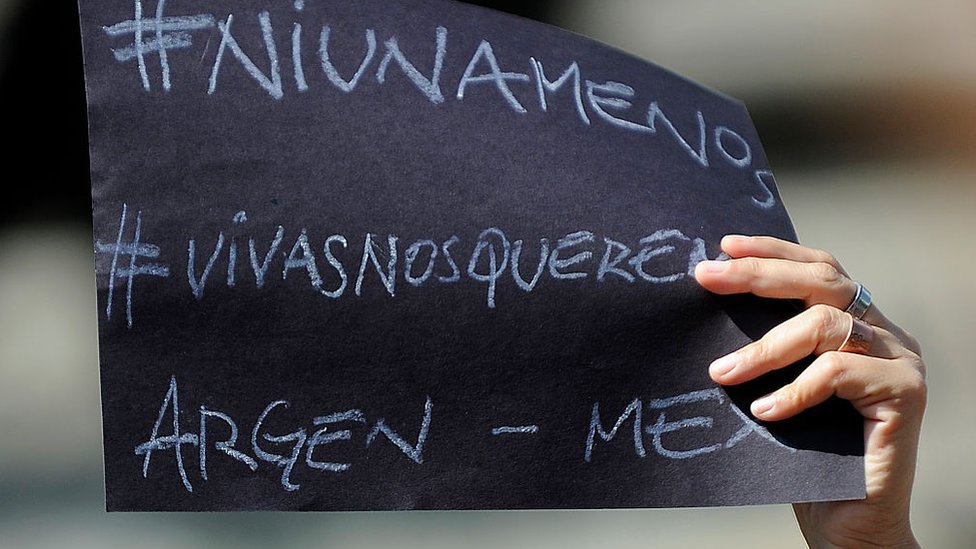 #NiUNAMENOS
#ViVASNOSQUEREM
ARGEN - MEX